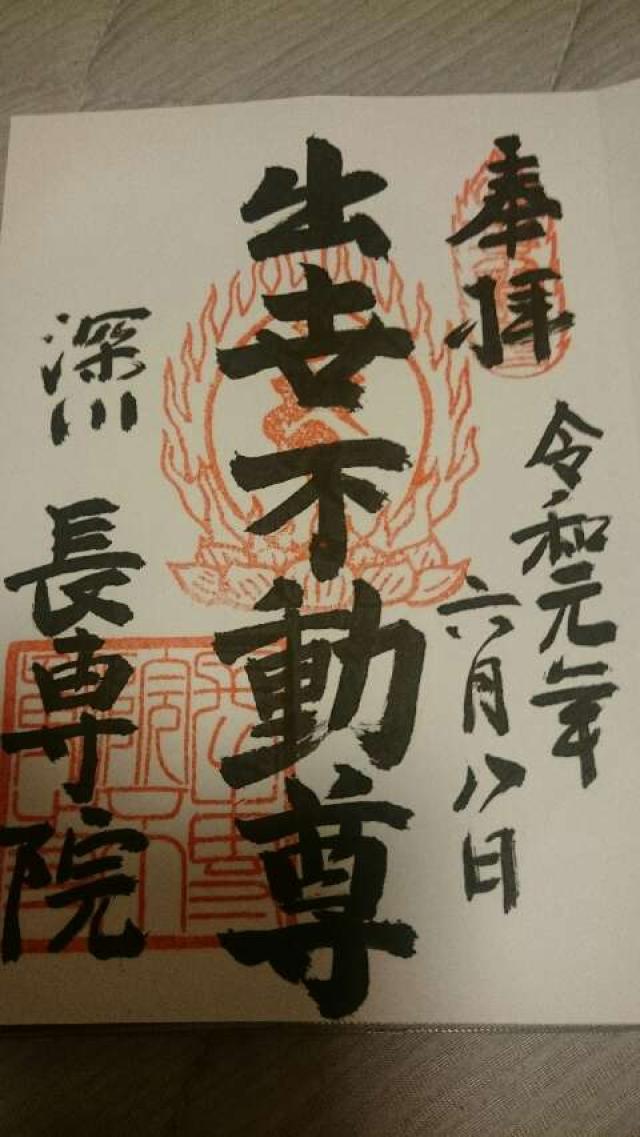 奉拝
令和元年
六月八日
出世不動尊
深川
長専院